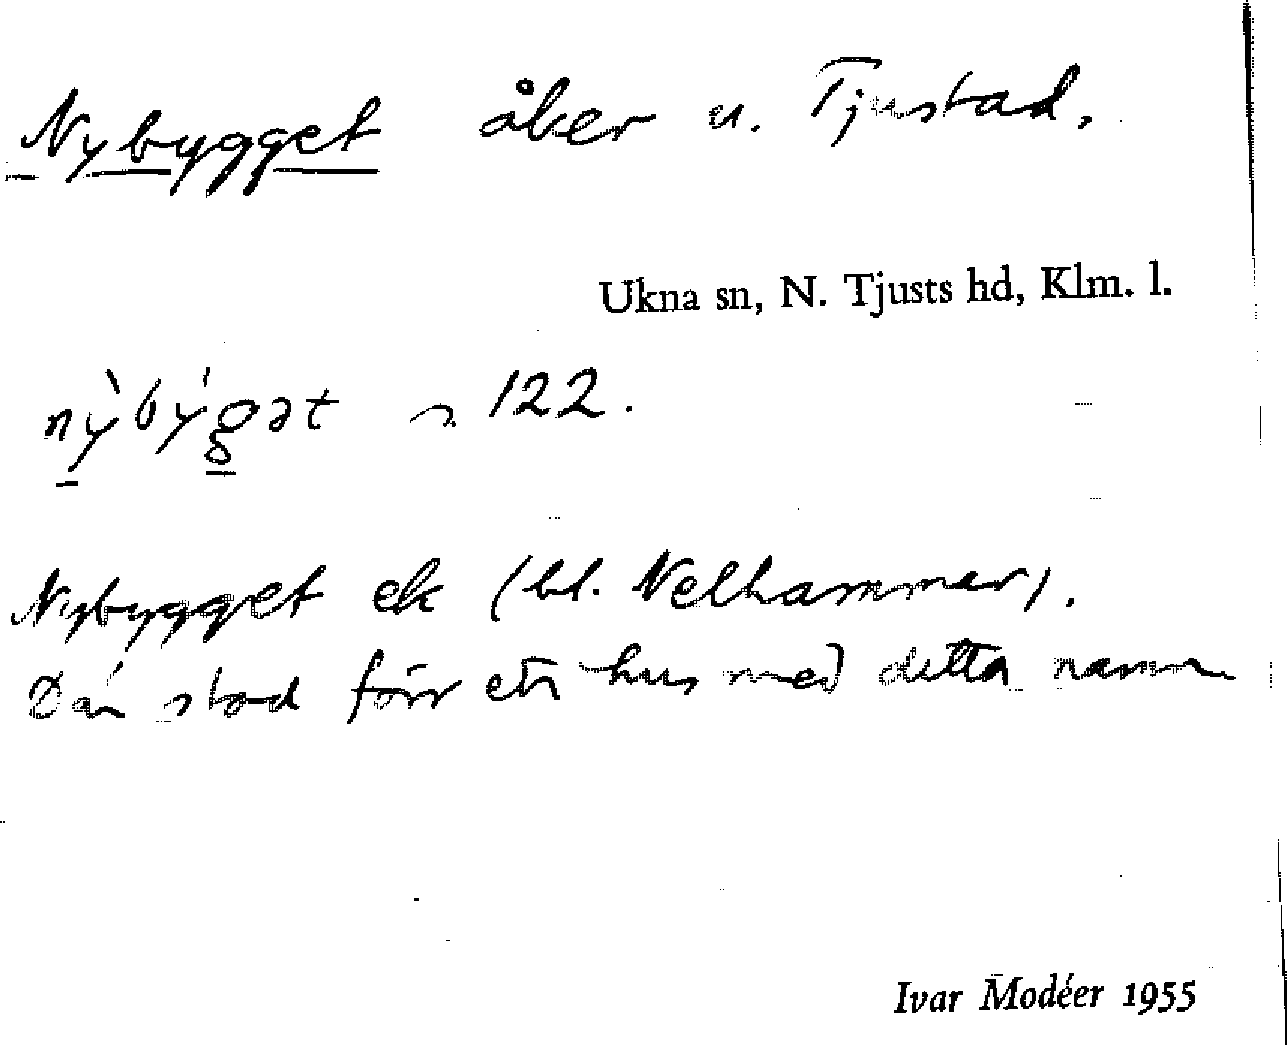 Nybygget åker u. Tjustad.
Ukna sn, N. Tjusts hd, Klm. l.
nỳ̠býg̠ət 122.
Nybygget ek (bl. Nelhammar).
Där stod förr ett hus med detta namn
Ivar Modéer 1955